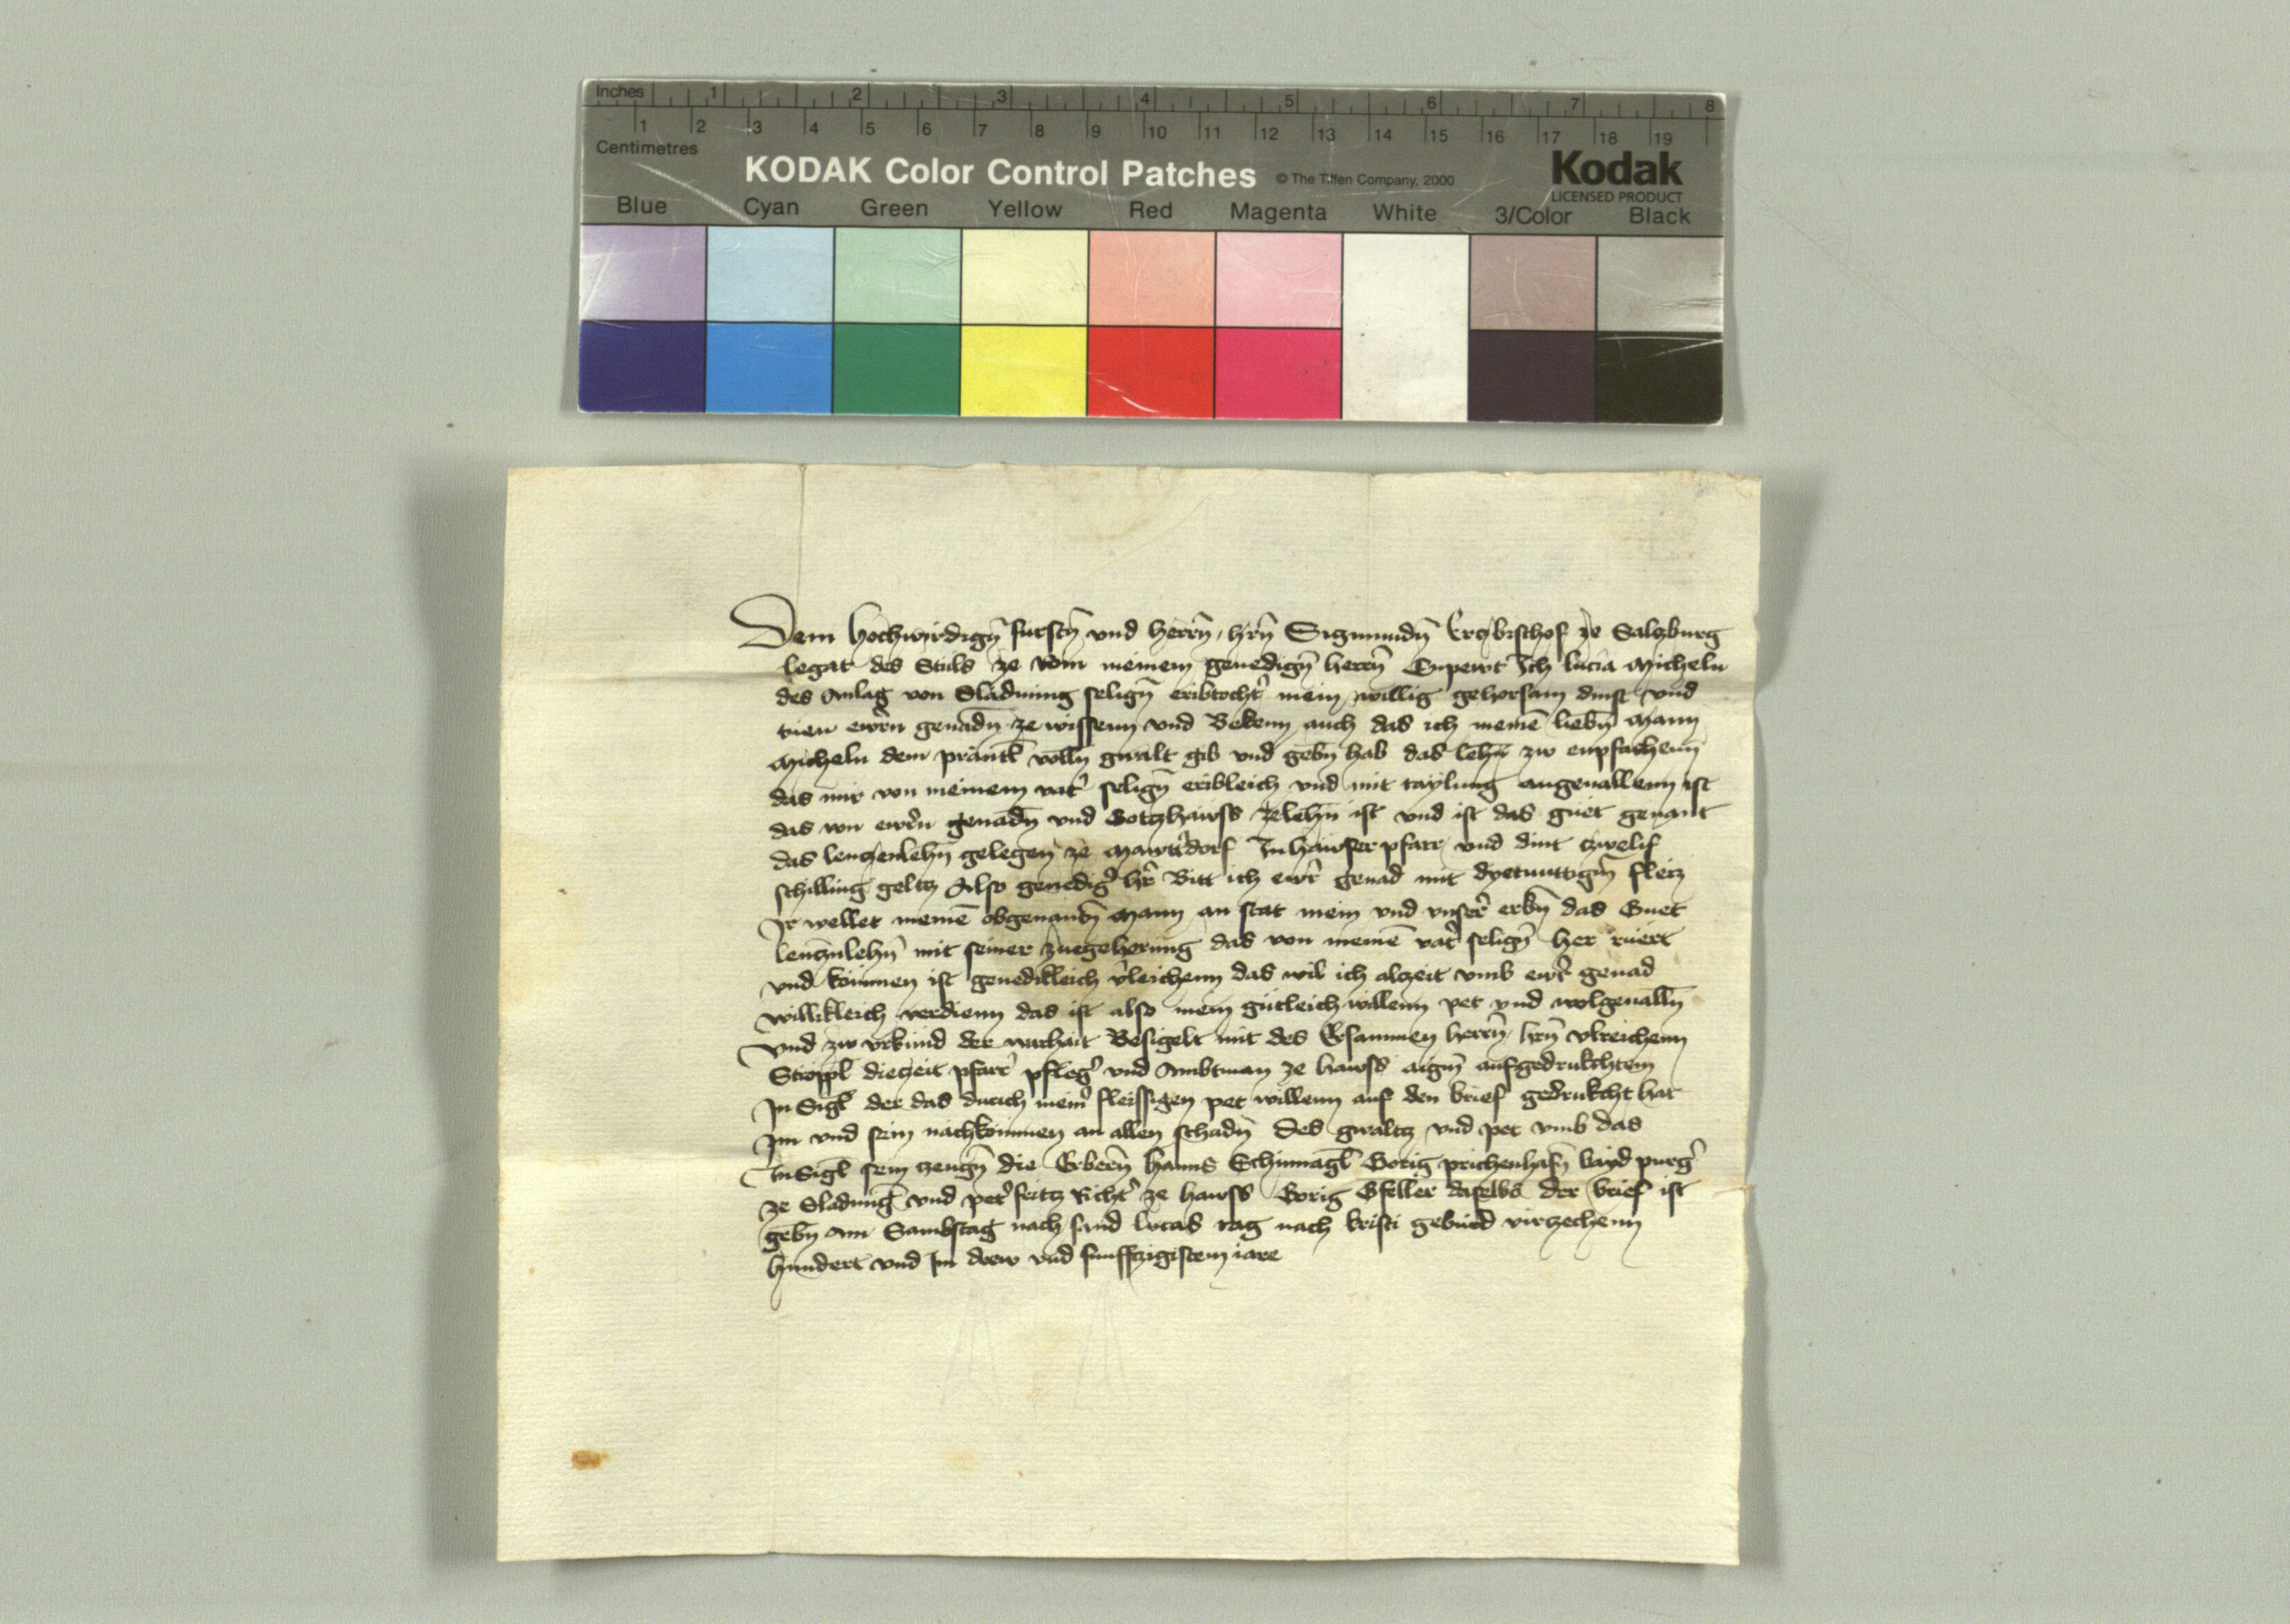 Inches 1 2 3 4 5 6 7 8
1 2 3 4 5 6 7 8 9 10 11 12 13 14 15 16 17 18 19
Centimetres
KODAK Color Control Patches © The Tiffen Company, 2000 Kodak
LICENSED PRODUCT
Blue Cyan Green Yellow Red Magenta White 3/Color Black
Dem hochwirdign̄ furstn̄ vnd herrn̄, hrn̄ Sigmundn̄ Erczbischof ze Salczburg
legat des Stuls ze Rom meinem genedign̄ herrn̄ Enpewt Ich lucia Micheln
des Anlag von Sladming selign̄ eribtocht' mein willig gehorsam dinst vnd
tuen ewrn̄ genadn̄ ze wissenn vnd Bekenn auch das ich meinē liebn̄ Mann
Micheln dem präntl volln̄ gwalt gib vnd gebn̄ hab das lehn̄ zw enpfachenn
das mir von meinem vat' selign̄ eribleich vnd mit taylung angeuallenn ist
das von ewrn̄ genadn̄ vnd Gotzhawss zelehn̄ ist vnd ist das guet genant
das lenczenlehn̄ gelegen ze Mawt'dorf In hawser pfarr vnd dint czwelif
schilling geltz Also genedig' hr̄ Bitt ich ewr̄ genad mit dyemuttign̄ fleiz
Ir wellet meinē obgenantn̄ Mann an stat mein vnd vnser' erbn̄ das Guet
lenczn̄lehn̄ mit seiner zuegehorung das von meinē vat' selign̄ her ruert
vnd kömmen ist genedikleich v'leichenn das wil ich alczeit vmb ewr̄ genad
willikleich verdienn das ist also mein gütleich willenn pet vnd wolgeualln̄
vnd zw vrkund der warhait Besigelt mit des Ersammen herrn̄, hrn̄ vlreichenn
Stroppl dieczeit pfarr' pfleg' vnd Ambtman ze hawss aign̄ aufgedrukchtem
In Sigl der das durich mein' fleissigen pet willenn auf den brief gedrukcht hat
Im vnd sein nachkömmen an allen schadn̄ Des gwaltz vnd pet vmb das
In Sigl sein zeugn̄ die Erbern̄ hanns Schinnagl Gorig prichenhafn̄ bayd purg'
ze Sladmīg vnd pet' fritz Richt' ze hawss Gorig Gseller daselbs der brief ist
gebn̄ Am Sambstag nach sand lucas tag nach kristi geburd virczechenn
hundert vnd Im drew vnd funffczigistem iare